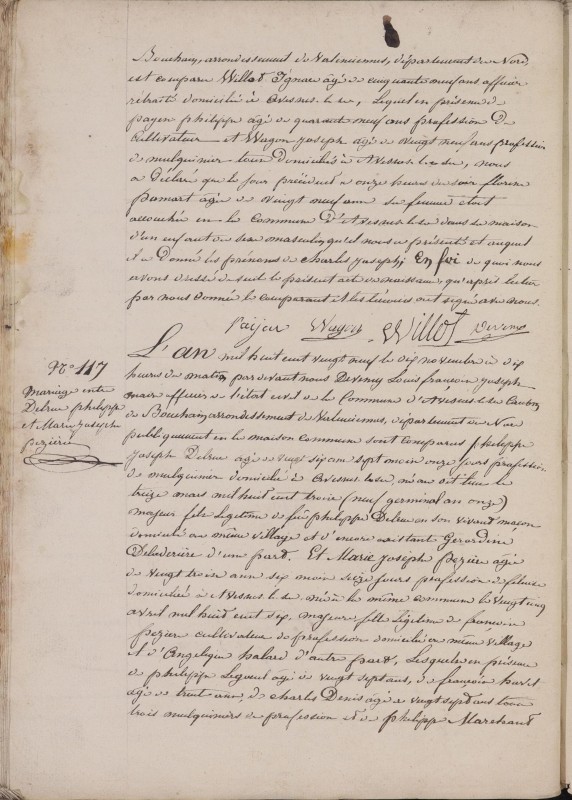 Bouchain, arrondissement de Valenciennes, département du Nord,
est comparu Willot Ignace agé de cinquante neuf ans officier
retraité domicilié à Avesnes-le-sec, Lequel en présence de
payen philippe agé de quarante neuf ans profession de
cultivateur et Wagon joseph agé de vingt neuf ans profession
de mulquinier tous domiciliés à Avesnes-le-sec, nous
a déclaré que le jour précédent a onze heures du soir florine
pamart agée de vingt neuf ans sa femme était
accouchée en la commune d'Avesnes-le-sec dans sa maison
d'un enfant de sexe masculin qu'il nous a présenté et auquel
il a donné les prénoms de charles joseph; En foi de quoi nous
avons dressé de suite le présent acte de naissance, qu'après lecture
par nous donnée le comparant et les témoins ont signé avec nous.
Paijen Wagon Willot Devemy
N° 117
Mariage entre
Delrue philippe
et Marie joseph
pezière
L'an mil huit cent vingt neuf le dix novembre à dix
heures du matin par devant nous Devemy Louis françois joseph
maire officier de l'état civil de la Commune d'Avesnes-le-sec Canton
de Bouchain, arrondissement de Valenciennes, département du Nord
publiquement en la maison commune sont comparus philippe
joseph Delrue agé de vingt six ans sept mois onze jours profession
de mulquinier domicilié à Avesnes-le-sec, né au dit lieu le
treize mars mil huit cent trois (neuf germinal an onze)
majeur fils légitime de feu philippe Delrue en son vivant maçon
domicilié au même village et d'encore existant Gérardine
d'une part. Et Marie joseph pezier agée
de vingt trois ans six mois seize jours profession de fileuse
domiciliée à Avesnes-le-sec née à la même commune le vingt cinq
avril mil huit cent six, majeure fille légitime de françois
pezier cultivateur de profession domicilié en même village
et d'Angelique halard d'autre part, Lesquels en présence
de philippe agé de vingt sept ans, de françois huret
agé de trente ans, de charles Denis agé de vingt sept ans tous
trois mulquiniers de profession et de philippe Marchand